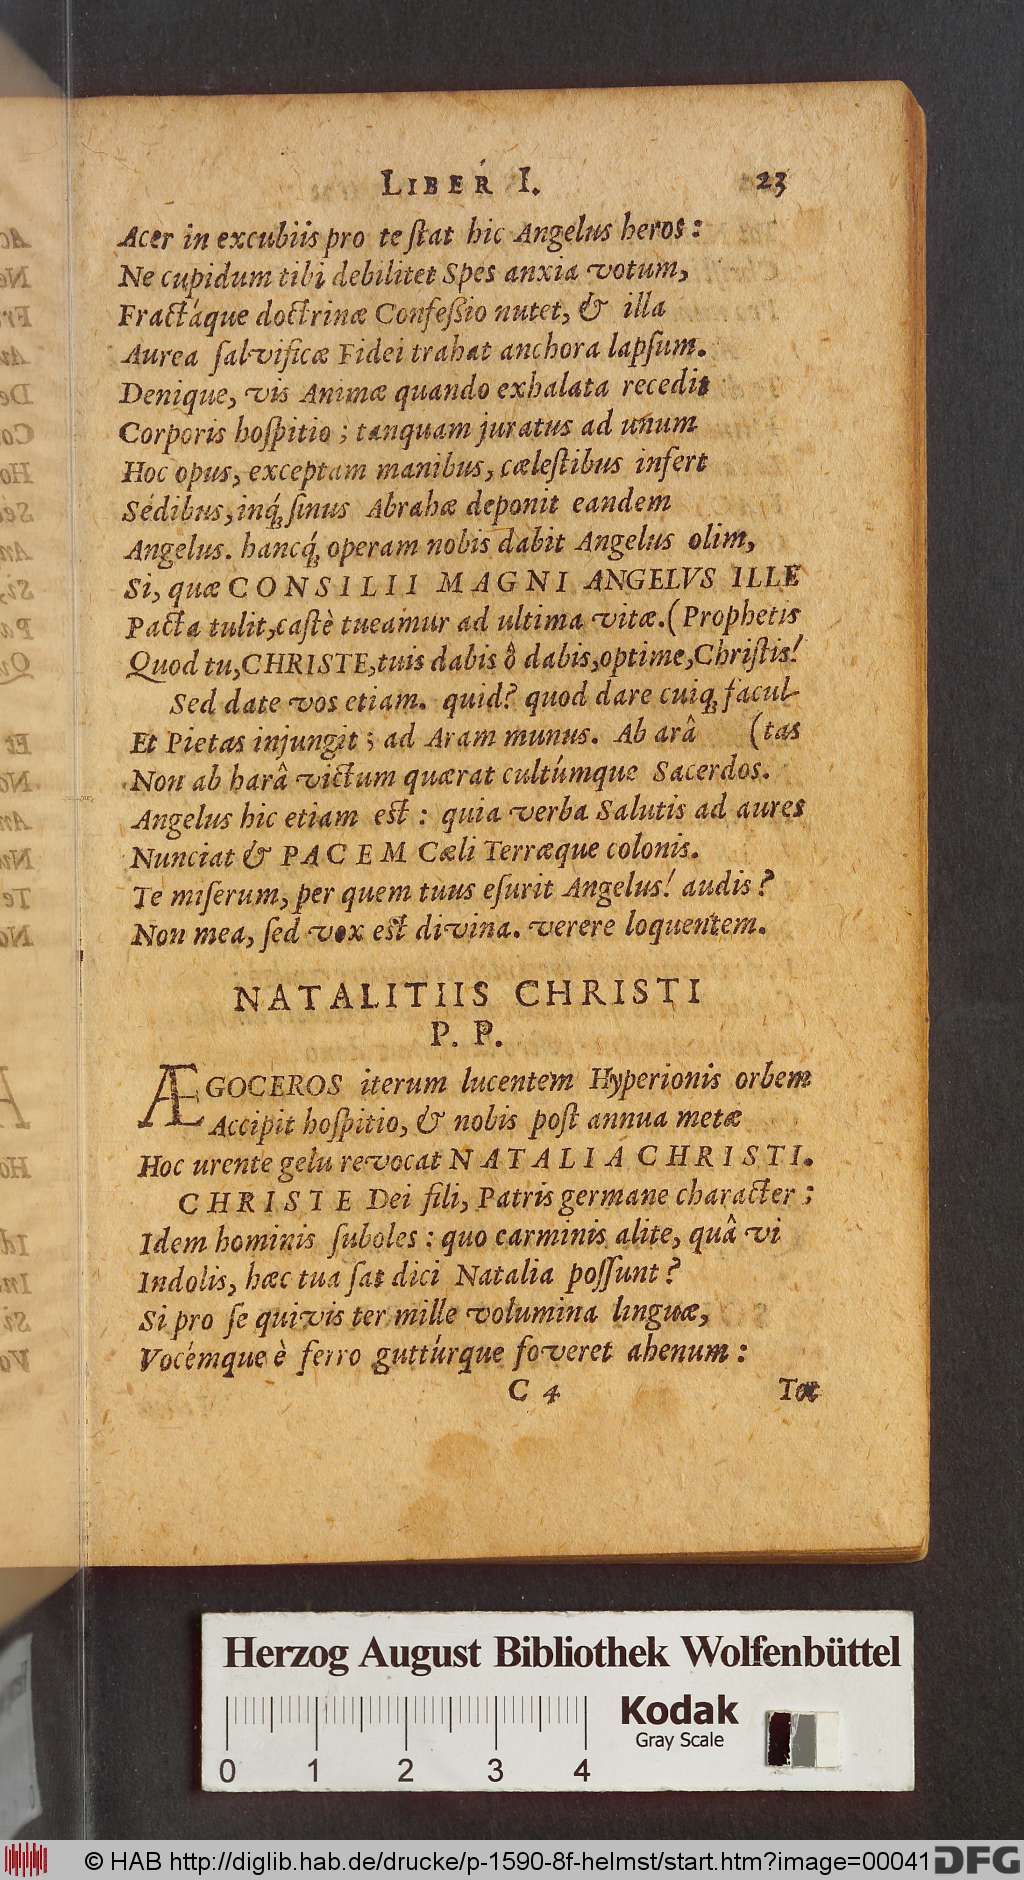 LIBER I. 23
Acer in excubiis pro te ſtat hic Angelus heros:
Ne cupidum tibi debilitet Spes anxia votum,
Fractáque doctrinæ Confeſſio nutet, & illa
Aurea ſalvificæ Fidei trahat anchora lapſum.
Denique, vis Animæ quando exhalata recedit
Corporis hoſpitio; tanquam juratus ad unum
Hoc opus, exceptam manibus, cæleſtibus infert
Sédibus, inq́ꝫ ſinus Abrahæ deponit eandem
Angelus. hancq́ꝫ operam nobis dabit Angelus olim,
Si, quæ CONSILII MAGNI ANGELVS ILLE
Pacta tulit, caſtè tueámur ad ultima vitæ. (Prophetis
Quod tu, CHRISTE, tuis dabis ô dabis, optime, Chriſtis!
Sed date vos etiam. quid? quod dare cuiqꝫ facul-
Et Pietas injungit; ad Aram munus. Ab arâ (tas
Non ab harâ victum quærat cultúmque Sacerdos.
Angelus hic etiam est: quia verba Salutis ad aures
Nunciat & PACEM Cæli Terræque colonis.
Te miſerum, per quem tuus eſurit Angelus! audis?
Non mea, ſed vox est divina. verere loquentem.
NATALITIIS CHRISTI
P. P.
ÆGOCEROS iterum lucentem Hyperionis orbem
Accipit hoſpitio, & nobis poſt annua metæ
Hoc urente gelu revocat NATALIA CHRISTI.
CHRISTE Dei fili, Patris germane character;
Idem hominis ſuboles: quo carminis alite, quâ vi
Indolis, hæc tua ſat dici Natalia poſſunt?
Si pro ſe quivis ter mille volumina linguæ,
Vocémque è ferro guttúrque foveret ahenum:
C 4 Tot
Herzog August Bibliothek Wolfenbüttel
Kodak
Gray Scale
0 1 2 3 4
© HAB http://diglib.hab.de/drucke/p-1590-8f-helmst/start.htm?image=00041 DFG